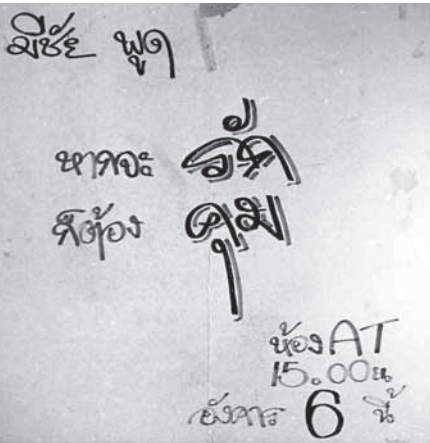 มีชัย พูด
หากจะ รัก
ก็ต้อง คุม
ห้อง AT
15.00น
อังคาร 6 นี้